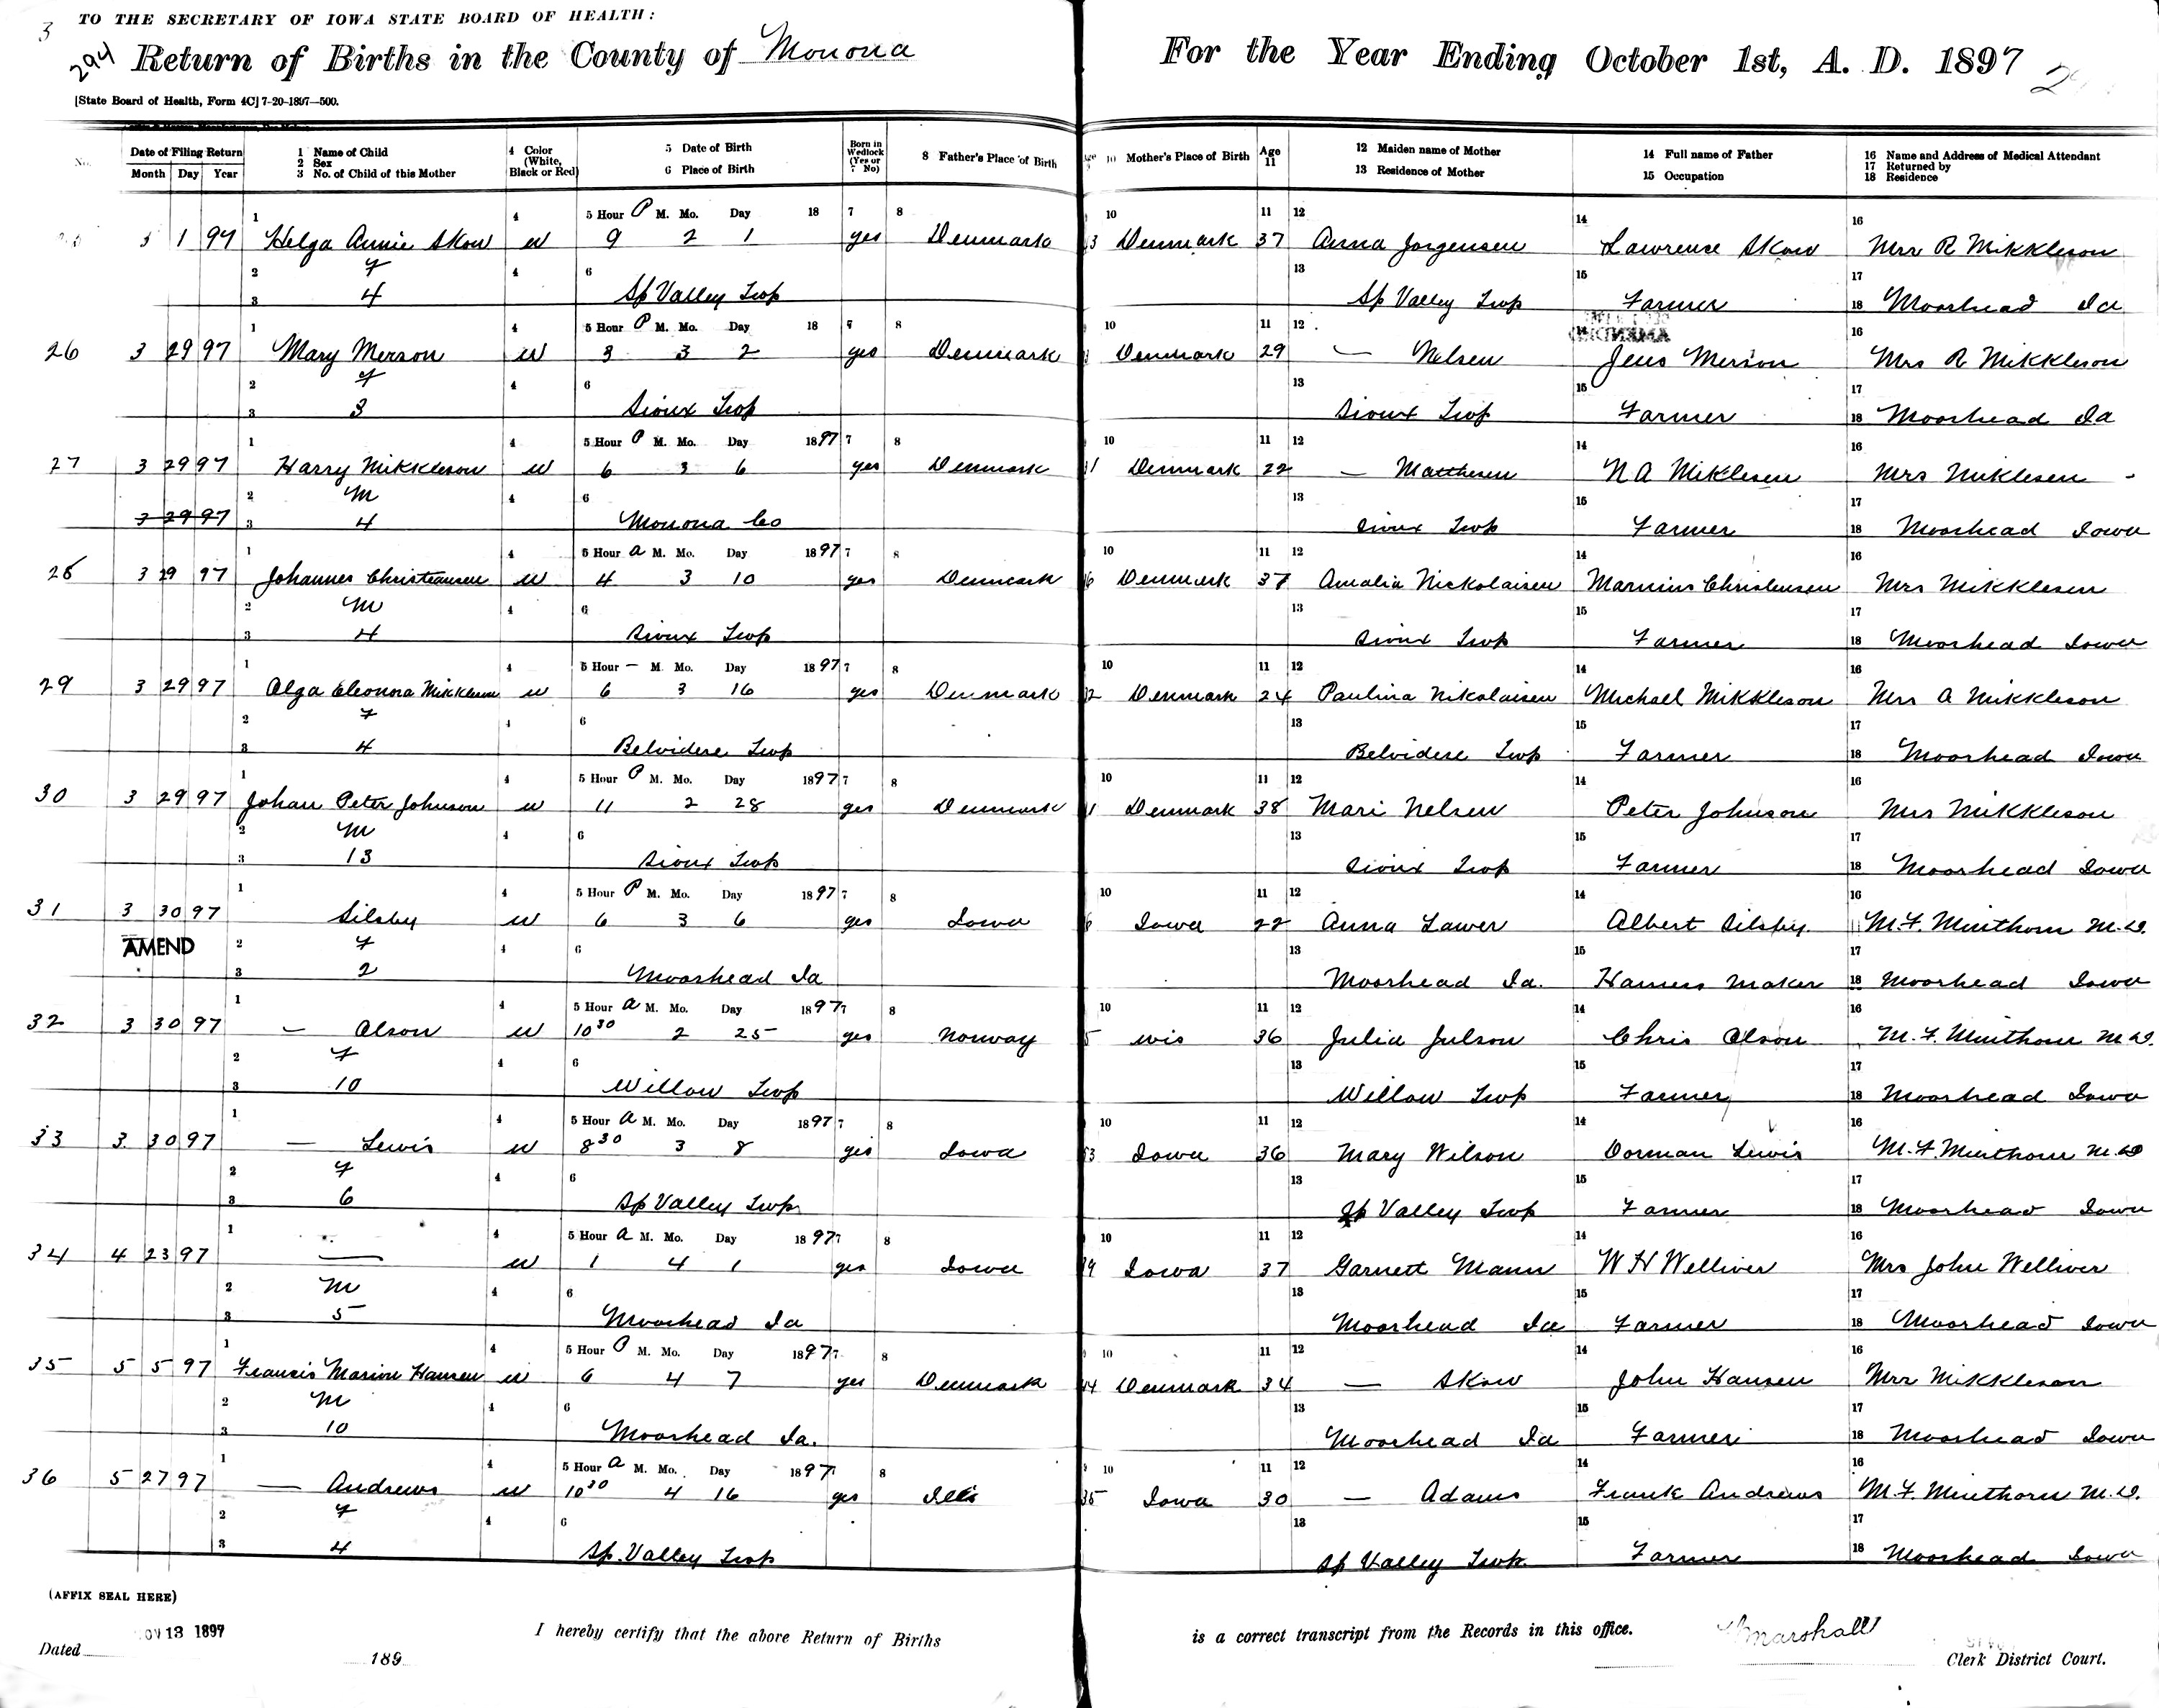 3
TO THE SECRETARY OF IOWA STATE BOARD OF HEALTH:
294 Return of Births in the County of Monona For the Year Ending October 1st, A. D. 1897
[State Board of Health, Form 4C] 7-20-1897—500.
No. Date of Filing Return Month Day Year
1 Name of Child 2 Sex 3 No. of Child of this Mother
4 Color (White, Black or Red)
5 Date of Birth 6 Place of Birth
Born in Wedlock (Yes or 7 No)
8 Father's Place of Birth
10 Mother's Place of Birth Age 11
12 Maiden name of Mother 13 Residence of Mother
14 Full name of Father 15 Occupation
16 Name and Address of Medical Attendant 17 Returned by 18 Residence
1 4 5 Hour P M. Mo. Day 18 7 8 10 11 12 14 16
1 97 Helga Annie Skow W 9 2 1 yes Denmark 3 Denmark 37 Anna Jorgensen Lawrense Skow Mrs R Mikkleson
2 f 4 6 13 15 17
3 4 Sp Valley Twp Sp Valley Twp Farmer 18 Moorhead Ia
1 4 5 Hour P M. Mo. Day 18 7 8 10 11 12 16
26 3 29 97 Mary Merson W 3 3 2 yes Denmark Denmark 29 — Nelsen Jens Merson Mrs R Mikkleson
2 f 4 6 13 15 17
3 3 Sioux Twp Sioux Twp Farmer 18 Moorhead Ia
1 4 5 Hour P M. Mo. Day 1897 7 8 10 11 12 14 16
27 3 29 97 Harry Mikkleson W 6 3 6 yes Denmark 1 Denmark 22 — Matthesen N A Miklesen Mrs Miklesen
2 M 4 6 13 15 17
3 29 97 3 4 Monona Co Sioux Twp Farmer 18 Moorhead Iowa
1 4 5 Hour A M. Mo. Day 1897 7 8 10 11 12 14 16
28 3 29 97 Johannes Christiansen W 4 3 10 yes Denmark 6 Denmark 37 Amalia Nickolaisen Marinus Christensen Mrs Mikklesen
2 M 4 6 13 15 17
3 4 Sioux Twp Sioux Twp Farmer 18 Moorhead Iowa
1 4 5 Hour — M. Mo. Day 1897 7 8 10 11 12 14 16
29 3 29 97 Alga Eleonna Mikkleson W 6 3 16 yes Denmark 2 Denmark 24 Paulina Nikolaisen Michael Mikkleson Mrs A Mikkleson
2 f 4 6 13 15 17
3 4 Belvidere Twp Belvidere Twp Farmer 18 Moorhead Iowa
1 4 5 Hour P M. Mo. Day 1897 7 8 10 11 12 14 16
30 3 29 97 Johan Peter Johnson W 11 2 28 yes Denmark 1 Denmark 38 Mari Nelsen Peter Johnson Mrs Mikkleson
2 M 4 6 13 15 17
3 13 Sioux Twp Sioux Twp Farmer 18 Moorhead Iowa
1 4 5 Hour P M. Mo. Day 1897 7 8 10 11 12 14 16
31 3 30 97 Silsby W 6 3 6 yes Iowa 6 Iowa 22 Anna Lawer Albert Silsby M. F. Minthorn M.D.
AMEND 2 f 4 6 13 15 17
3 2 Moorhead Ia Moorhead Ia. Harness Maker 18 Moorhead Iowa
1 4 5 Hour A M. Mo. Day 1897 7 8 10 11 12 14 16
32 3 30 97 — Olson W 10 30 2 25 yes Norway 5 Wis 36 Julia Julson Chris Olson M. F. Minthorn M.D.
2 f 4 6 13 15 17
3 10 Willow Twp Willow Twp Farmer 18 Moorhead Iowa
1 4 5 Hour A M. Mo. Day 1897 7 8 10 11 12 14 16
33 3 30 97 — Lewis W 8 30 3 8 yes Iowa 3 Iowa 36 Mary Wilson Dorman Lewis M. F. Minthorn M.D
2 f 4 6 13 15 17
3 6 Sp Valley Twp Sp Valley Twp Farmer 18 Moorhead Iowa
1 4 5 Hour A M. Mo. Day 1897 7 8 10 11 12 14 16
34 4 23 97 — W 1 4 1 yes Iowa 9 Iowa 37 Garnett Mann W H Welliver Mrs John Welliver
2 M 4 6 13 15 17
3 5 Moorhead Ia Moorhead Ia Farmer 18 Moorhead Iowa
1 4 5 Hour P M. Mo. Day 1897 7 8 10 11 12 14 16
35 5 5 97 Francis Marion Hansen W 6 4 7 yes Denmark 4 Denmark 34 — Skow John Hansen Mrs Mikkleson
2 M 4 6 13 15 17
3 10 Moorhead Ia. Moorhead Ia Farmer 18 Moorhead Iowa
1 4 5 Hour A M. Mo. Day 1897 7 8 10 11 12 14 16
36 5 27 97 — Andrews W 10 30 4 16 yes Ills 35 Iowa 30 — Adams Frank Andrews M. F. Minthorn M.D.
2 f 4 6 13 15 17
3 4 Sp. Valley Twp Sp Valley Twp. Farmer 18 Moorhead Iowa
(AFFIX SEAL HERE)
Dated 13 1897 189 I hereby certify that the above Return of Births is a correct transcript from the Records in this office. Marshall
Clerk District Court.